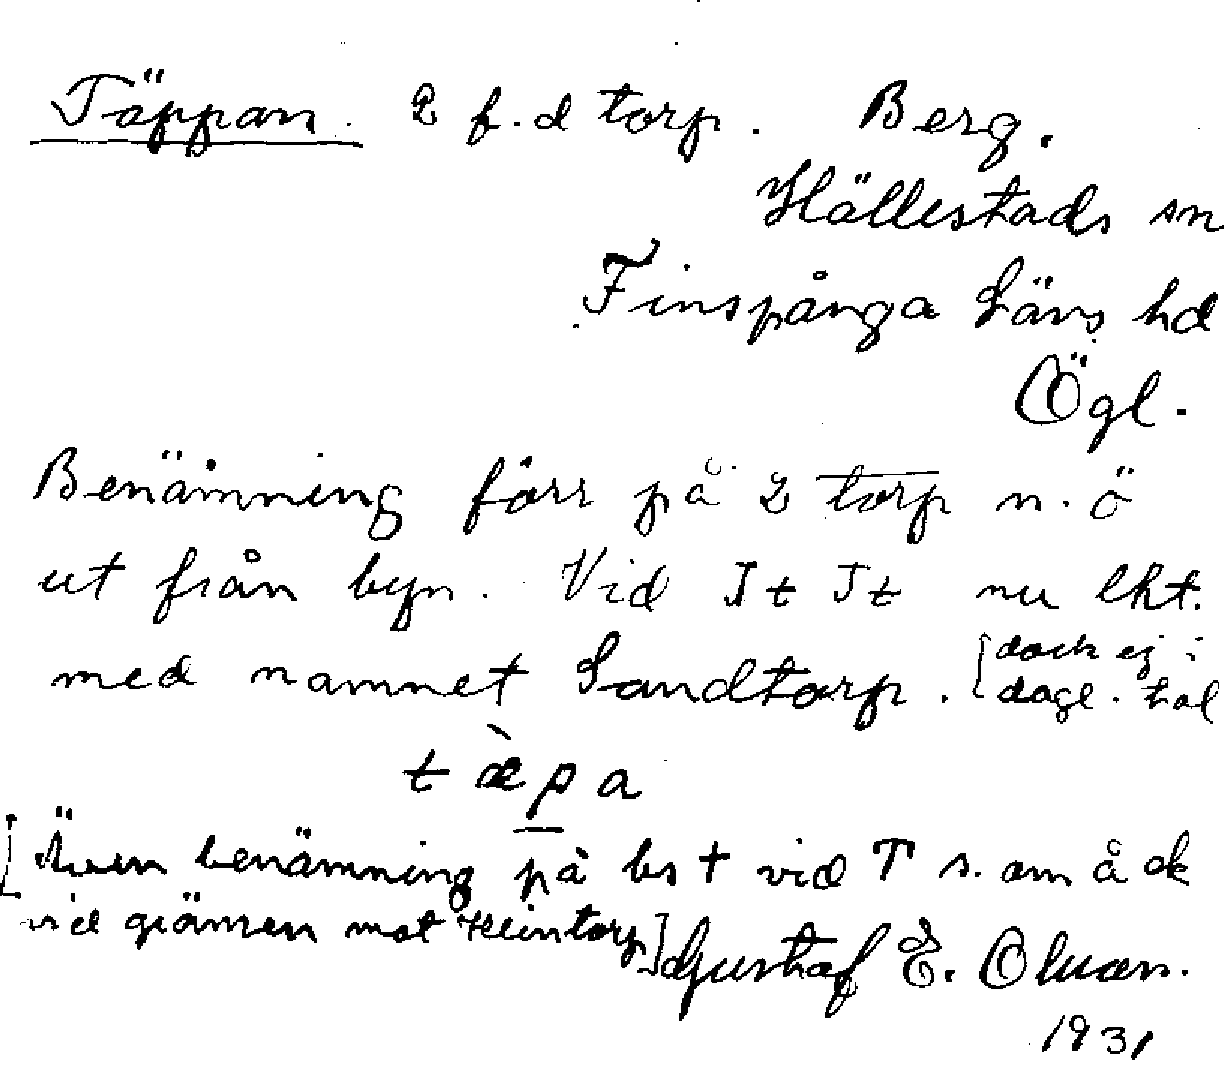 Täppan. 2 f.d torp. Berg.
Hällestads sn
Finspånga läns hd
Ögl.
Benämning förr på 2 torp n.ö
ut från byn. Vid It It nu lht.
med namnet Sandtorp. [dock ej i
dagl. tal
tæ̀pa
[Även benämning på bs † vid T s. om å ek
vid gränsen mot
Gustaf E. Olsson.
1931